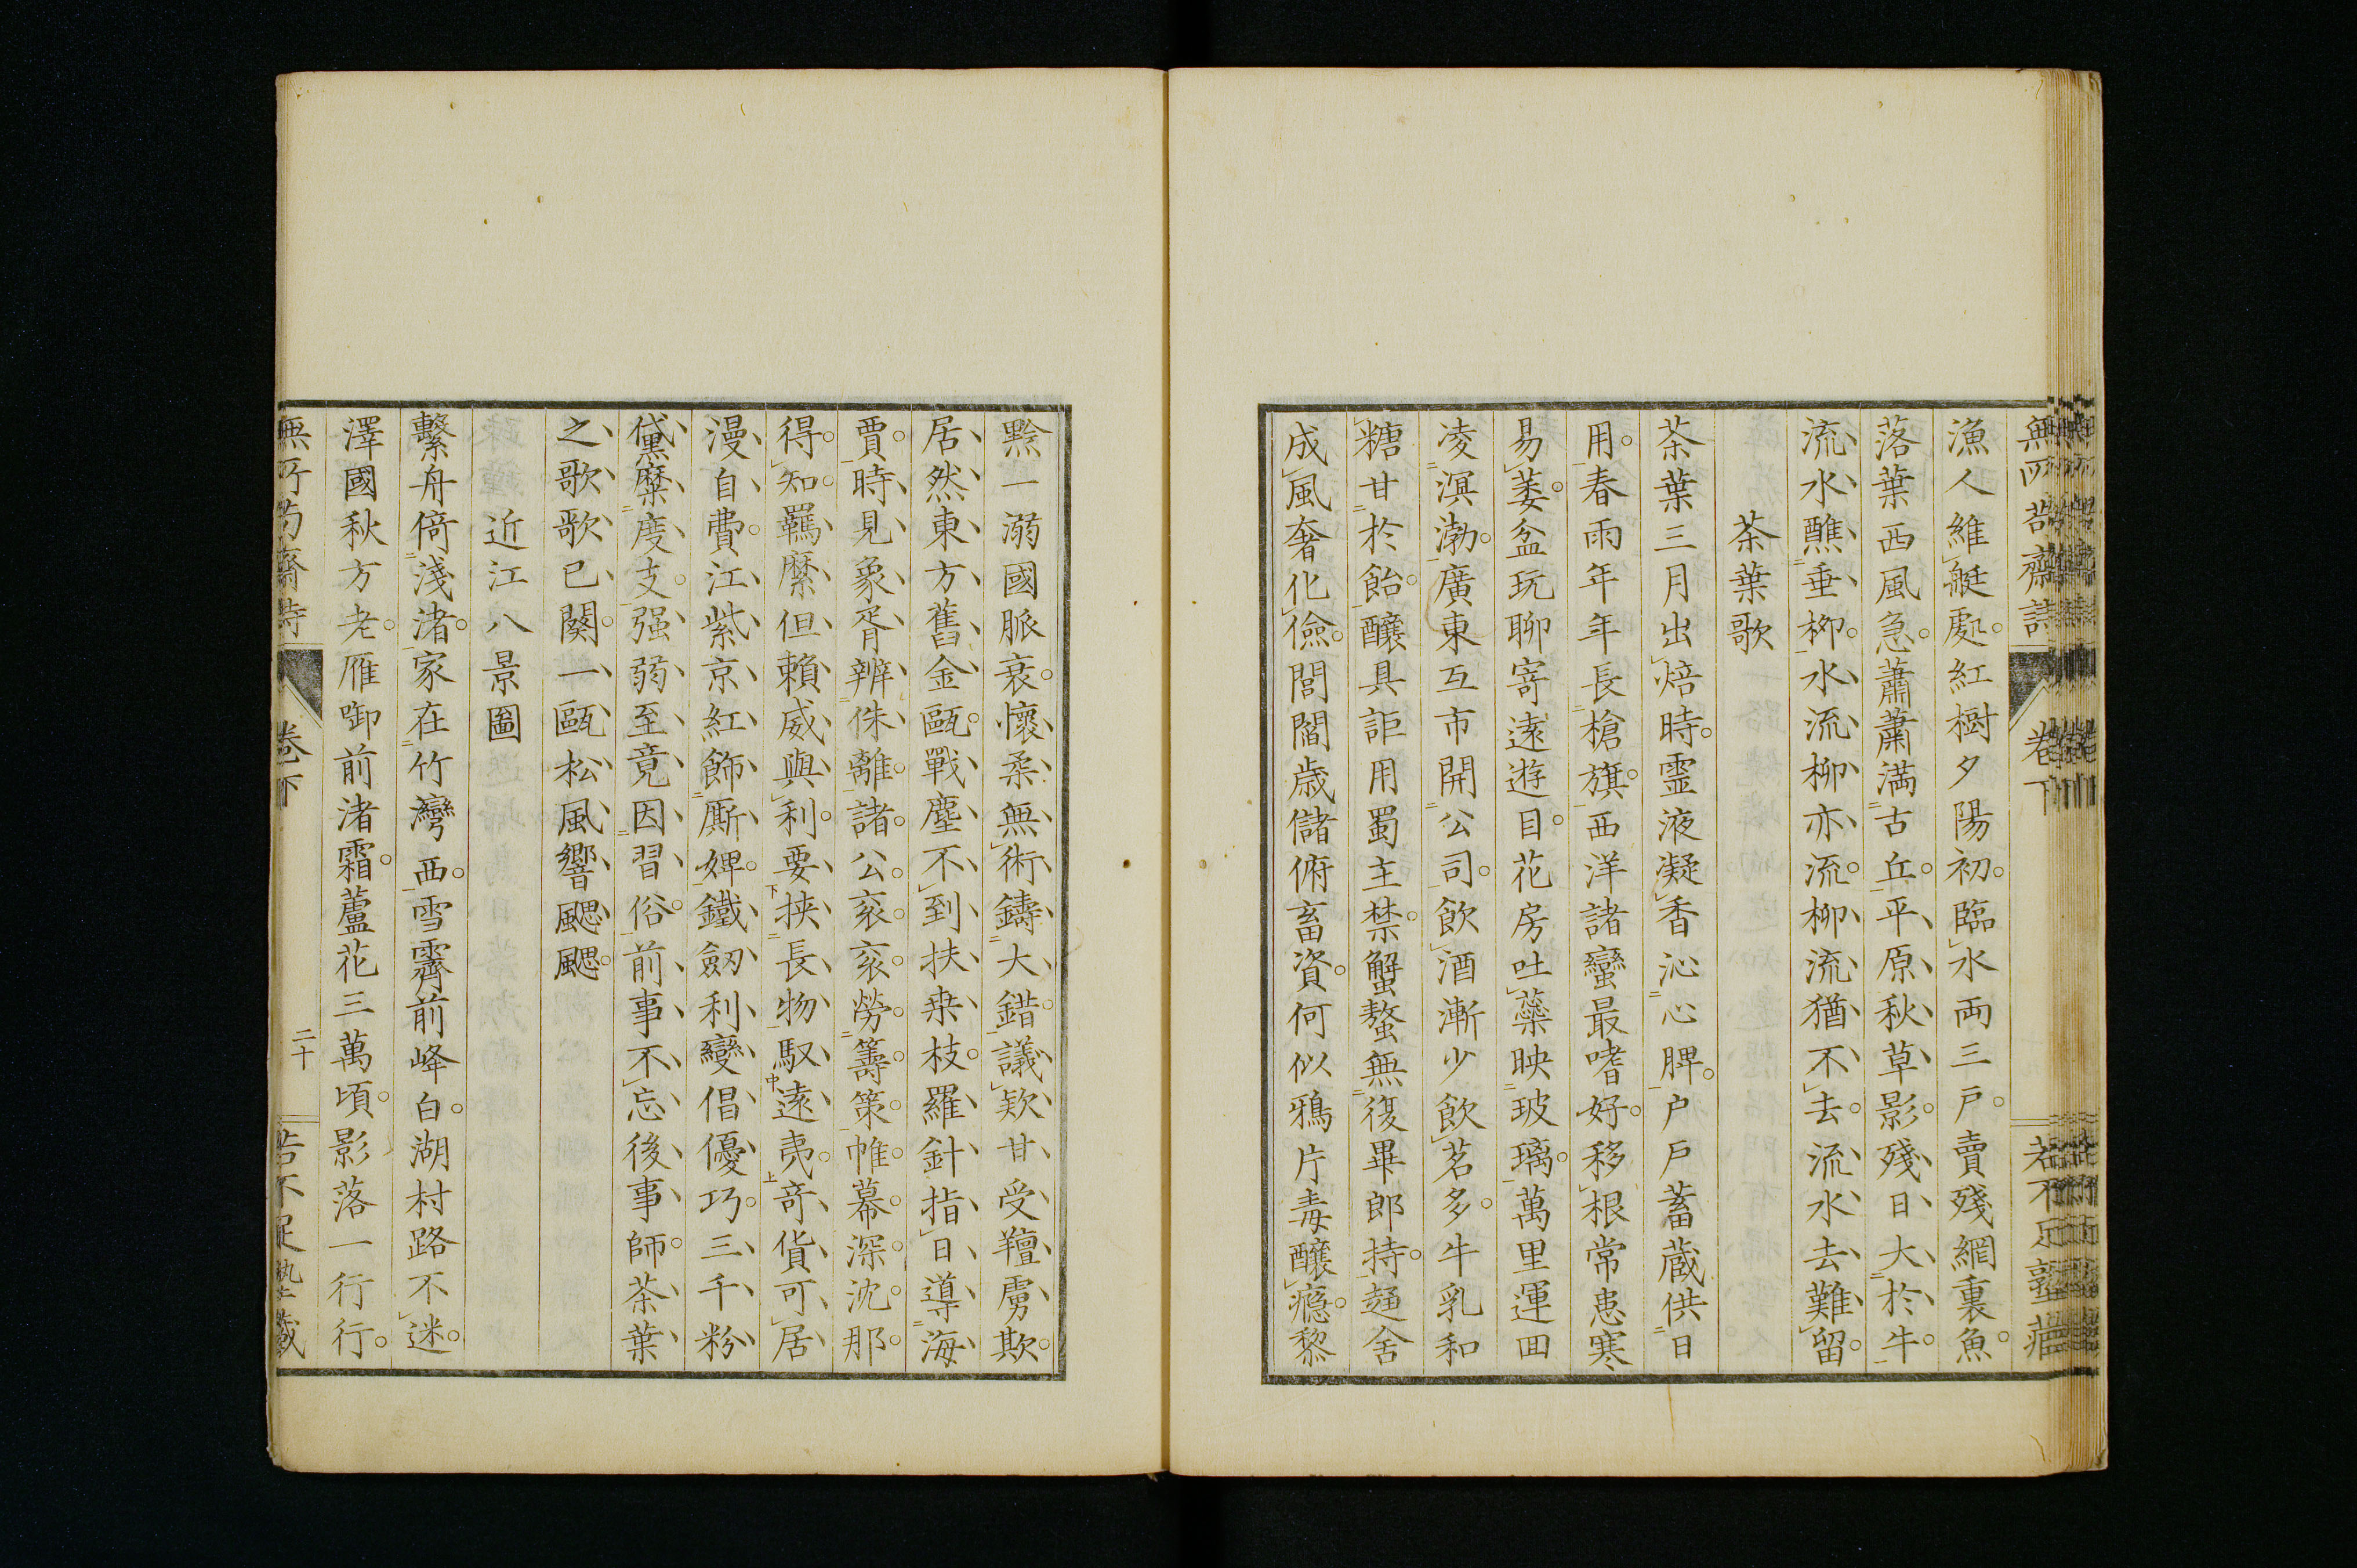 無所苟齋詩 卷下 若不足塾藏
漁人維艇處。紅樹夕陽初。臨水両三戸。賣殘網裏魚。
落葉西風急。蕭蕭満古丘。平原秋草影。殘日大於牛。
流水醮垂柳。水流柳亦流。柳流猶不去。流水去難留。
茶葉歌
茶葉三月出焙時。霊液凝香沁心脾。户戸蓄蔵供日
用。春雨年年長槍旗。西洋諸蠻最嗜好。移根常患寒
易萎。盆玩聊寄遠遊目。花房吐蘂映玻璃。萬里運回
凌溟渤。廣東互市開公司。飲酒漸少飲茗多。牛乳和
糖甘於飴。醸具詎用蜀主禁。蟹螯無復畢郎持。麺舎
成風奢化儉。閭閻歳儲俯畜資。何似鴉片毒醸癮。黎
黔一溺國脈衰。懐柔無術鑄大錯。議欵甘受羶虜欺。
居然東方舊金甌。戰塵不到扶桒枝。羅針指日導海
賈。時見象胥辨侏離。諸公衮衮勞籌策。帷幕深沈那
得知。羈縻但賴威與利。要挟長物馭遠夷。奇貨可居
漫自費。江紫京紅飾厮婢。鐵劔利變倡優巧。三千粉
黛糜度支。强弱至竟因習俗。前事不忘後事師。茶葉
之歌歌已闋。一甌松風響颸颸。
近江八景圖
繫舟倚淺渚。家在竹灣西。雪霽前峰白。湖村路不迷。
澤國秋方老。雁啣前渚霜。蘆花三萬頃。影落一行行。
無所苟齋詩 卷下 二十 若不足塾藏